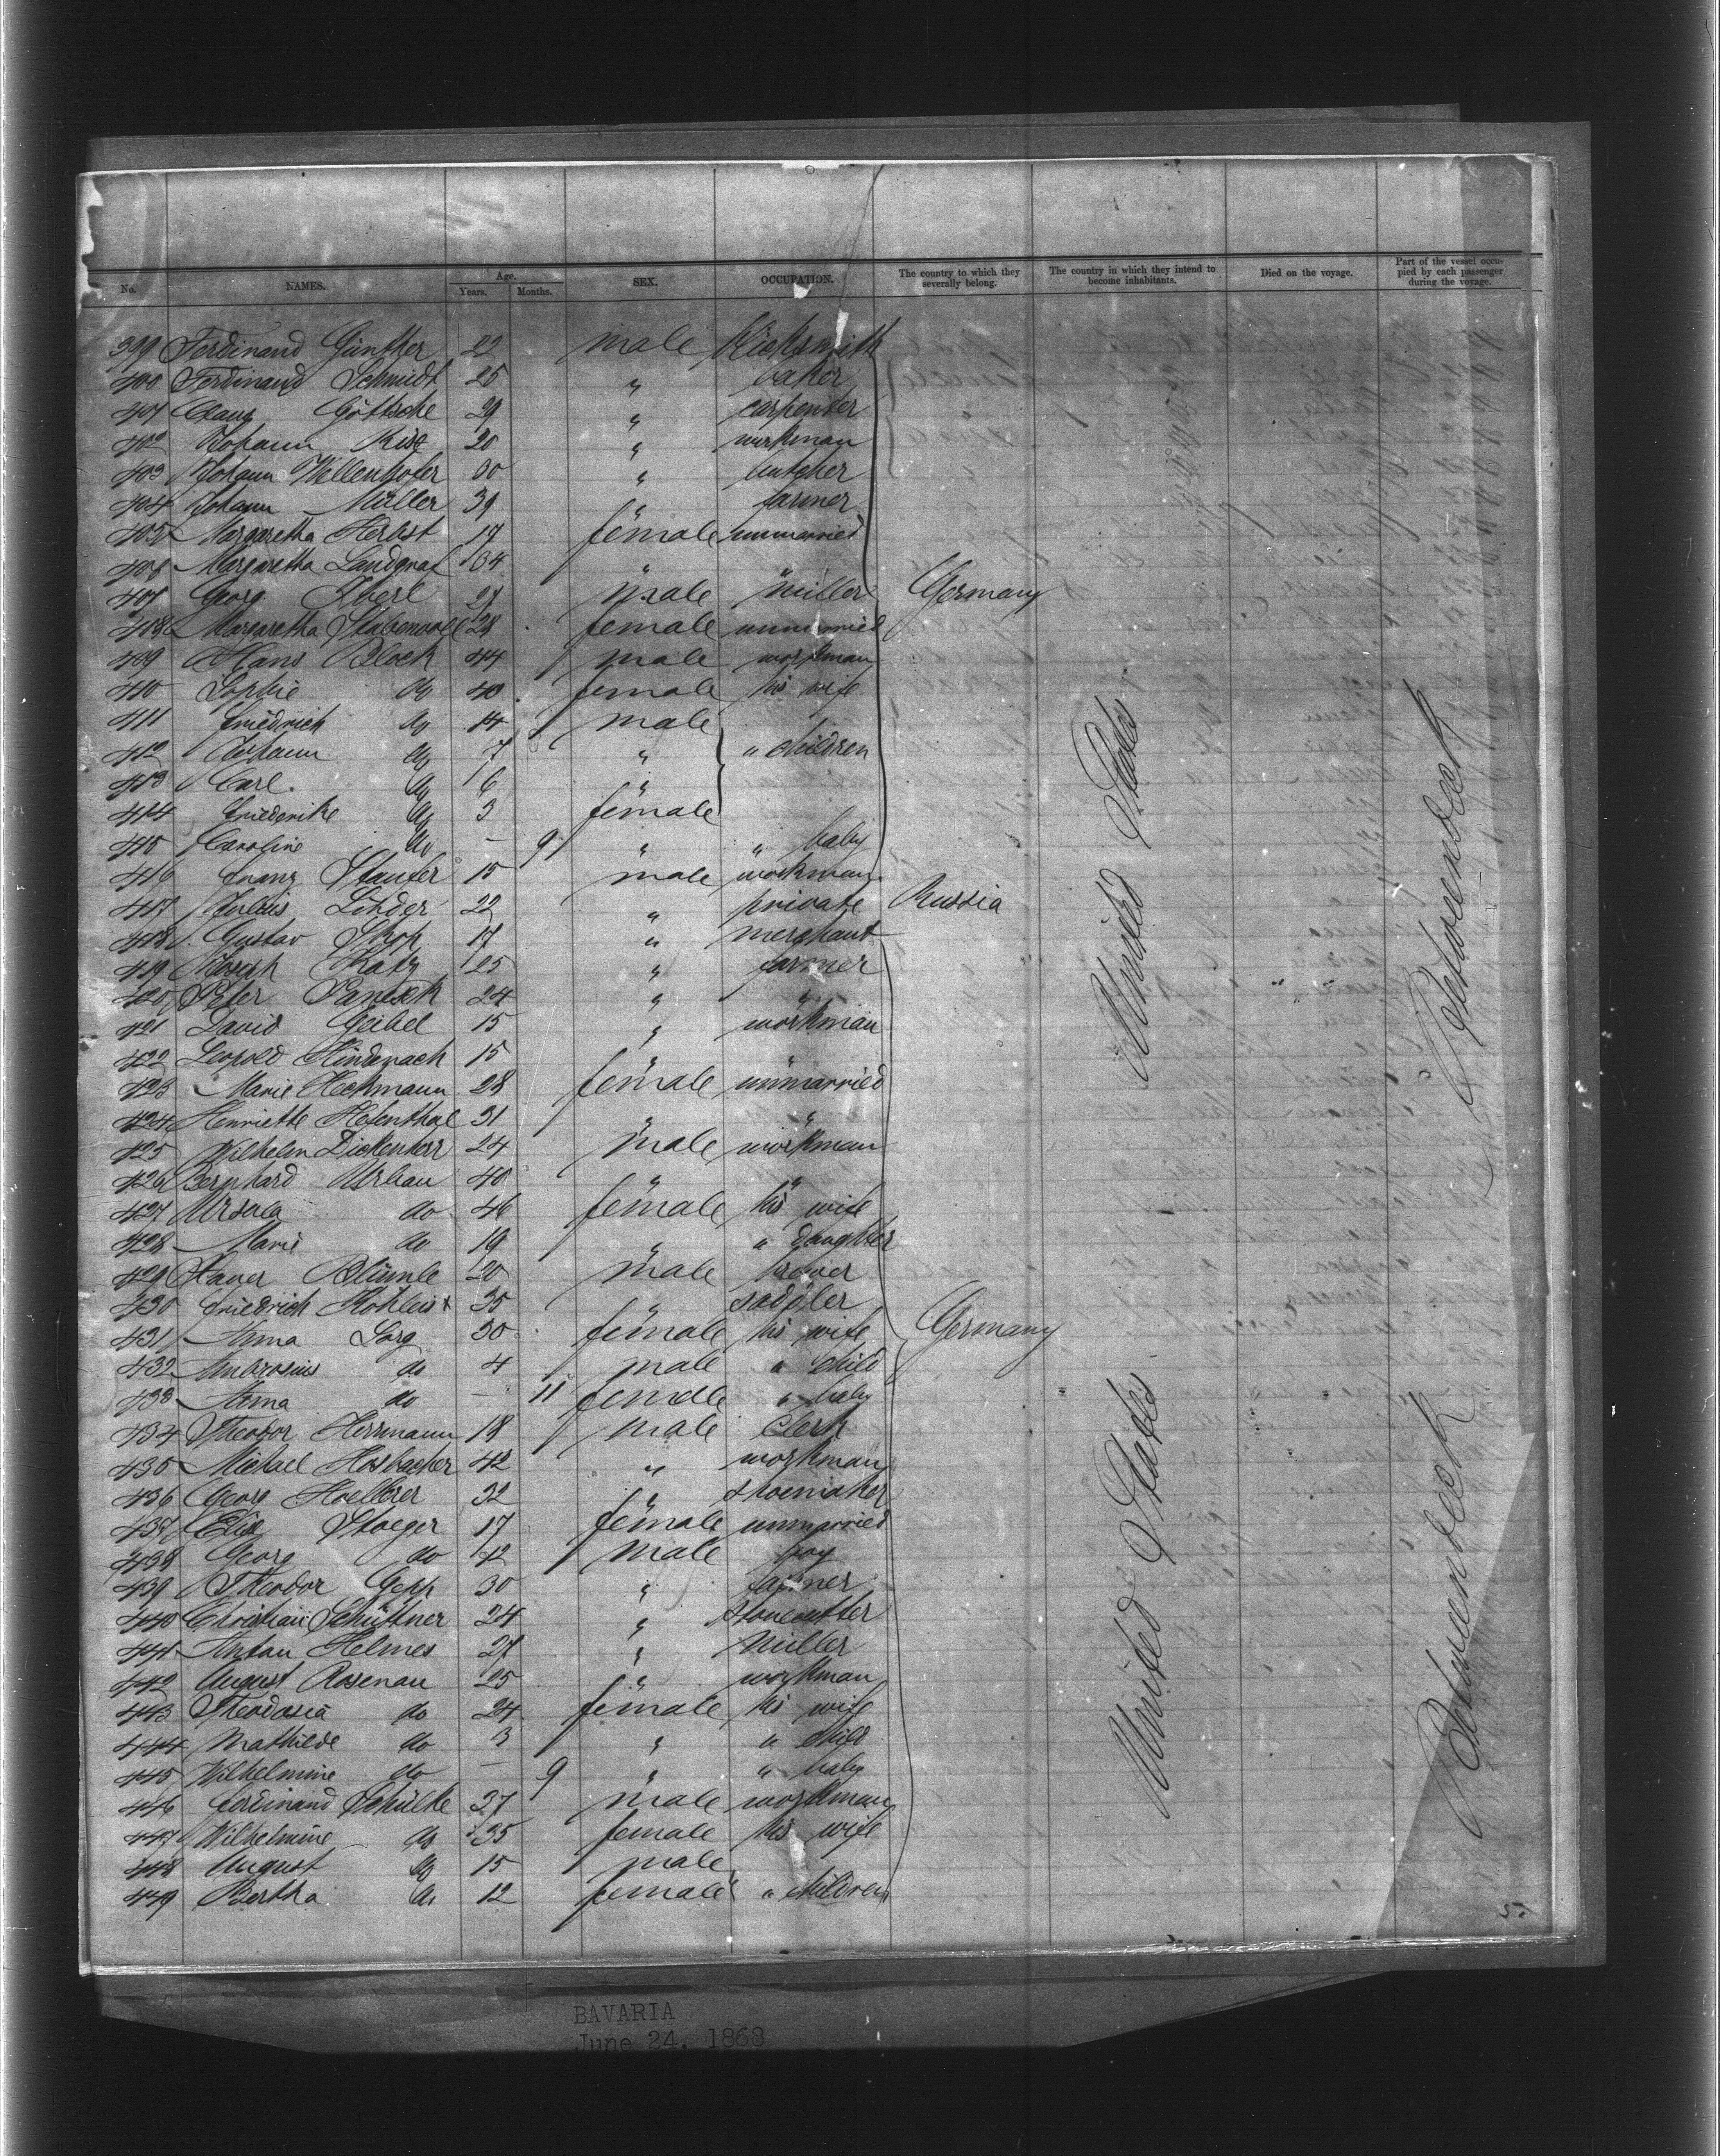 No. NAMES. Age. Years. Months. SEX. OCCUPATION. The country to which they severally belong. The country in which they intend to become inhabitants. Died on the voyage. Part of the vessel occupied by each passenger during the voyage.
399 Ferdinand Günther 22 male
400 Ferdinand Schmidt 25 " baker
401 Claus Göttsche 29 " carpenter
402 Johann 20 " workman
403 Johann 30 " butcher
404 Johann Müller 39 " farmer
405 Margaretha Herbst 17 female unmarried
406 Margaretha Landgraf 34 " "
407 Georg 27 male miller Germany
408 Margaretha 28 female unmarried
409 Hans Block 44 male workman
410 Sophie do 40 female his wife
411 Friedrich do 14 male
412 Johann do 7 " " children
413 Carl do 6 "
414 Friederike do 3 female
415 Caroline do — 9 " " baby
416 Franz Staufer 15 male workman
417 Julius 22 " private Russia
418 Gustav 17 " merchant
419 Joseph Katz 25 " farmer
420 Peter 24 " "
421 David Geibel 15 " workman
422 Leopold 15 " "
423 Marie Heckmann 28 female unmarried
424 Henriette 31 " "
425 Wilhelm 24 male workman
426 Bernhard Urban 48 " "
427 Ursula do 46 female his wife
428 Marie do 19 " " daughter
429 Xaver Blümle 20 male brewer
430 Friedrich 35 " saddler
431 Anna Sorg 30 female his wife Germany
432 Ambrosius do 4 male " child
433 Anna do — 11 female " baby
434 Theodor Herrmann 18 male clerk
435 Michael Hosbacher 42 " workman
436 Georg 32 " shoemaker
437 Elise Stoeger 17 female unmarried
438 Georg do 12 male boy
439 Theodor Gepp 30 " farmer
440 Christian Schüttner 24 " stonecutter
441 Anton Helmes 27 " miller
442 August Rosenau 25 " workman
443 Theodosia do 24 female his wife
444 Mathilde do 3 " " child
445 Wilhelmine do — 9 " " baby
446 Ferdinand Schülke 37 male workman
447 Wilhelmine do 35 female his wife
448 August do 15 male
449 Bertha do 12 female " children
United States
United States
Betweendeck
Betweendeck
52
BAVARIA
June 24, 1868